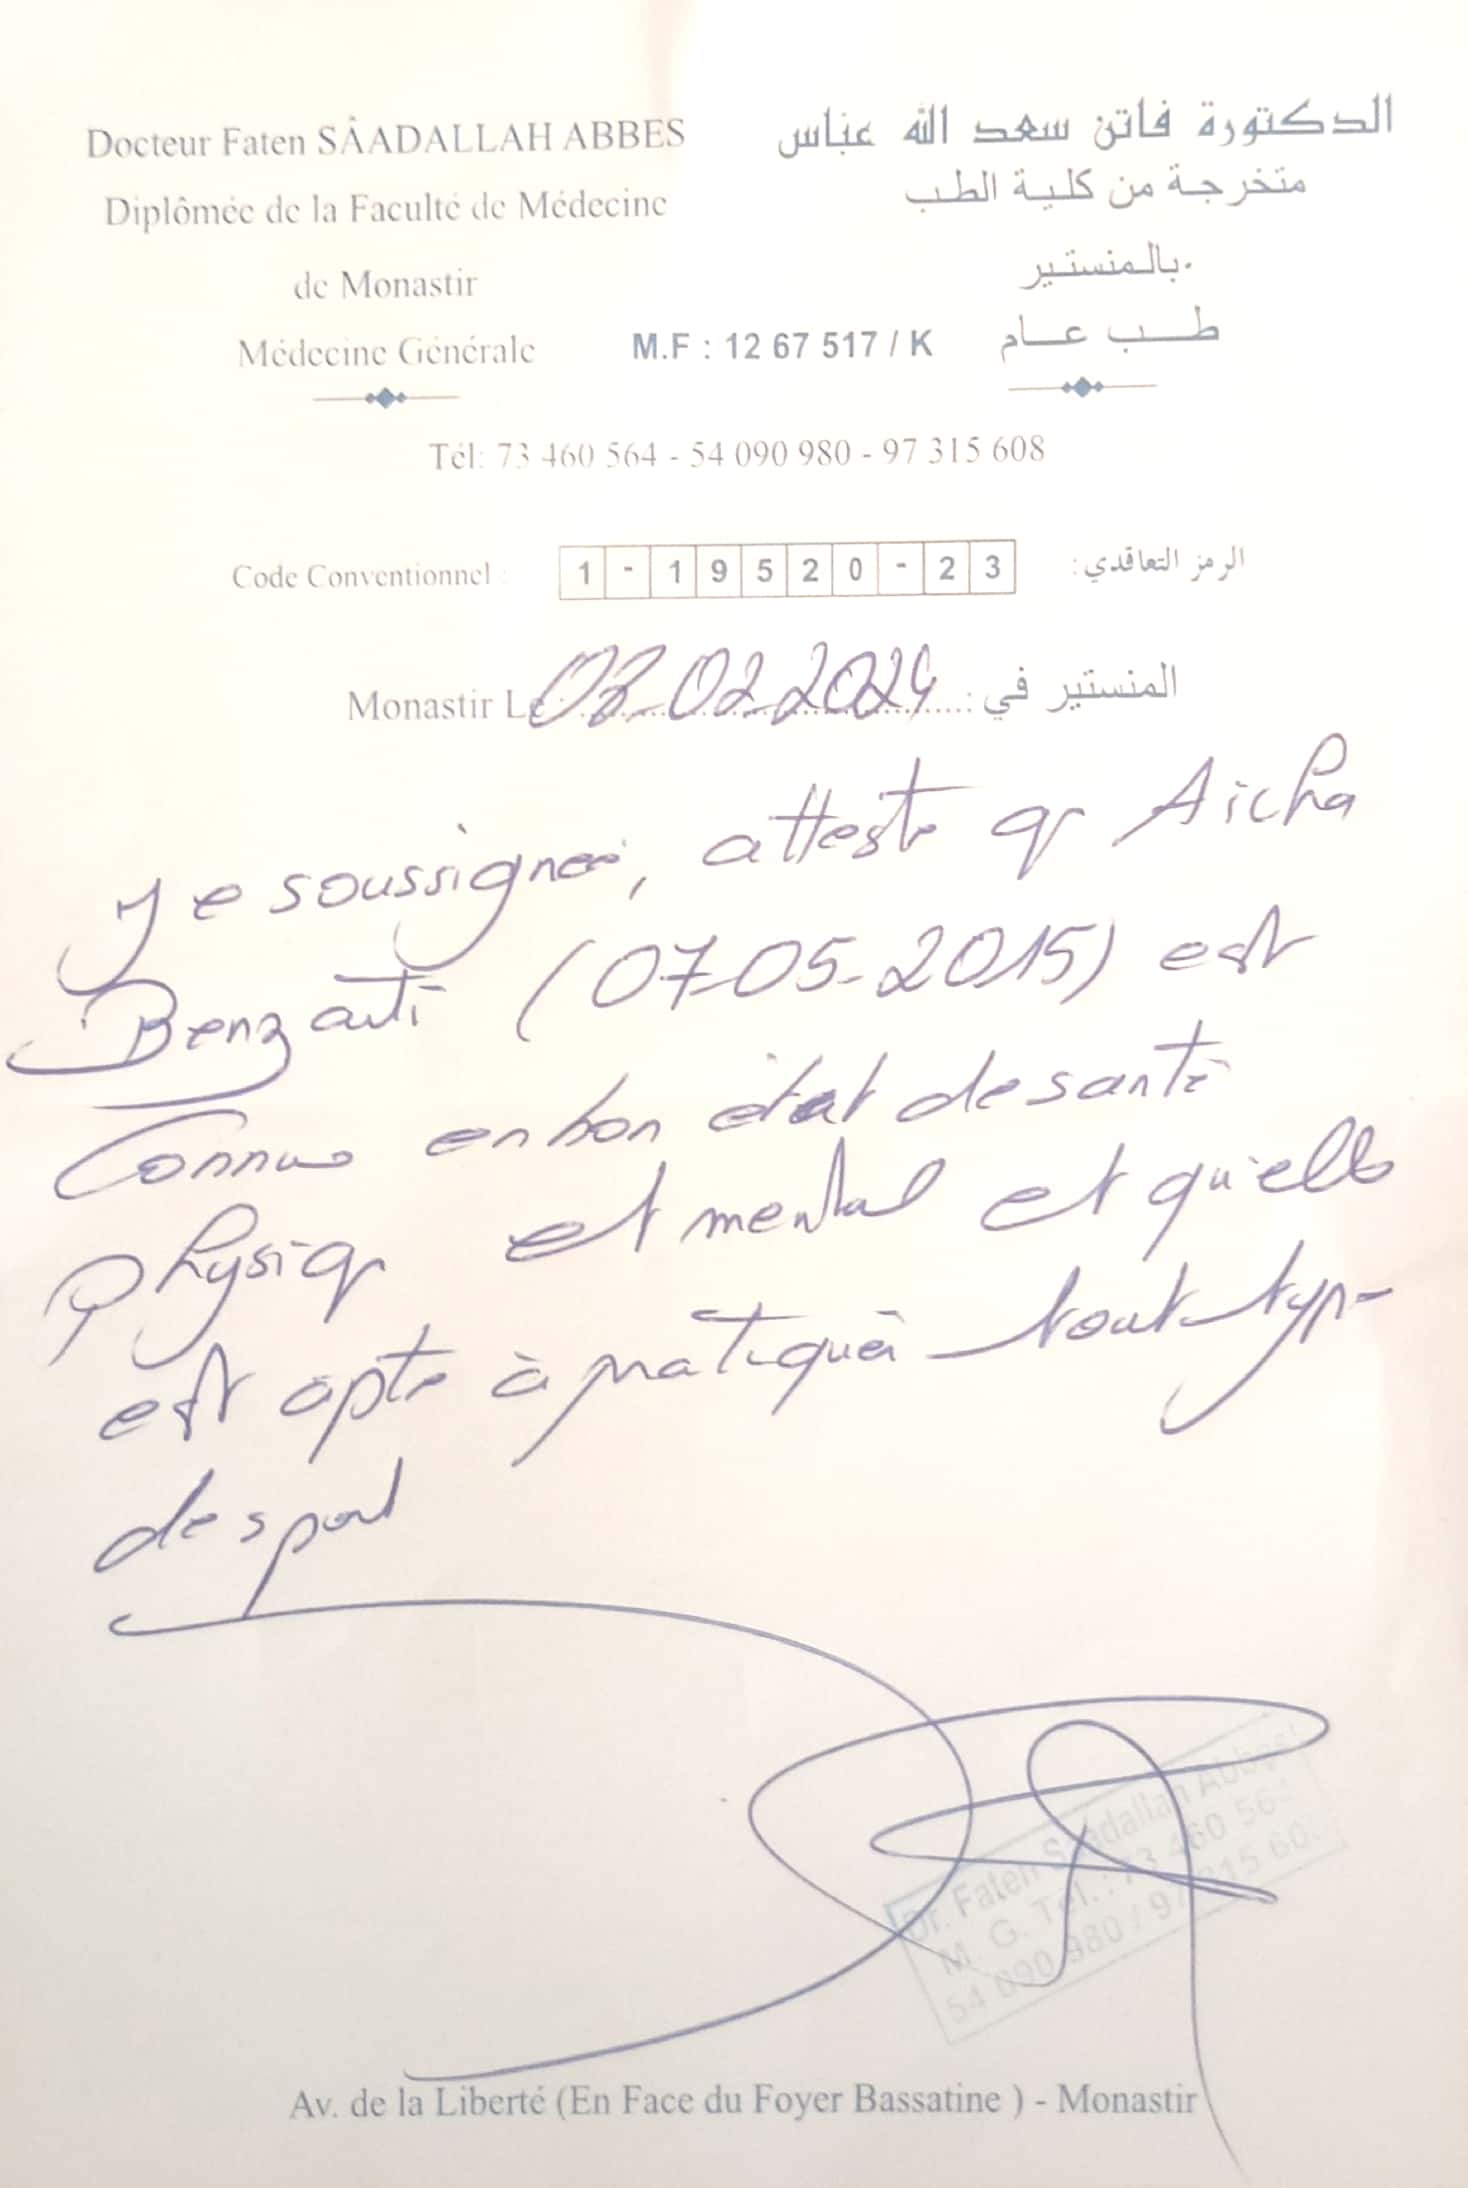 Docteur Faten SÂADALLAH ABBES
Diplômée de la Faculté de Médecine
de Monastir
Médecine Générale
الدكتورة فاتن سعد الله عباس
متخرجة من كلية الطب
بالمنستير
طب عام
M.F : 12 67 517 / K
Tél: 73 460 564 - 54 090 980 - 97 315 608
Code Conventionnel : 1 - 19520 - 23 الرمز التعاقدي:
Monastir Le 02.2024 المنستير في :
Je soussignée, atteste q Aicha
Benzarti (07-05-2015) est
Connue en bon état de santé
physiq et mental et qu'elle
est apte à pratiquer tout type
de sport
Dr. Faten Saadallah Abbes
M. G. Tél. : 73 460 564
54 090 980 / 97 315 608
Av. de la Liberté (En Face du Foyer Bassatine ) - Monastir